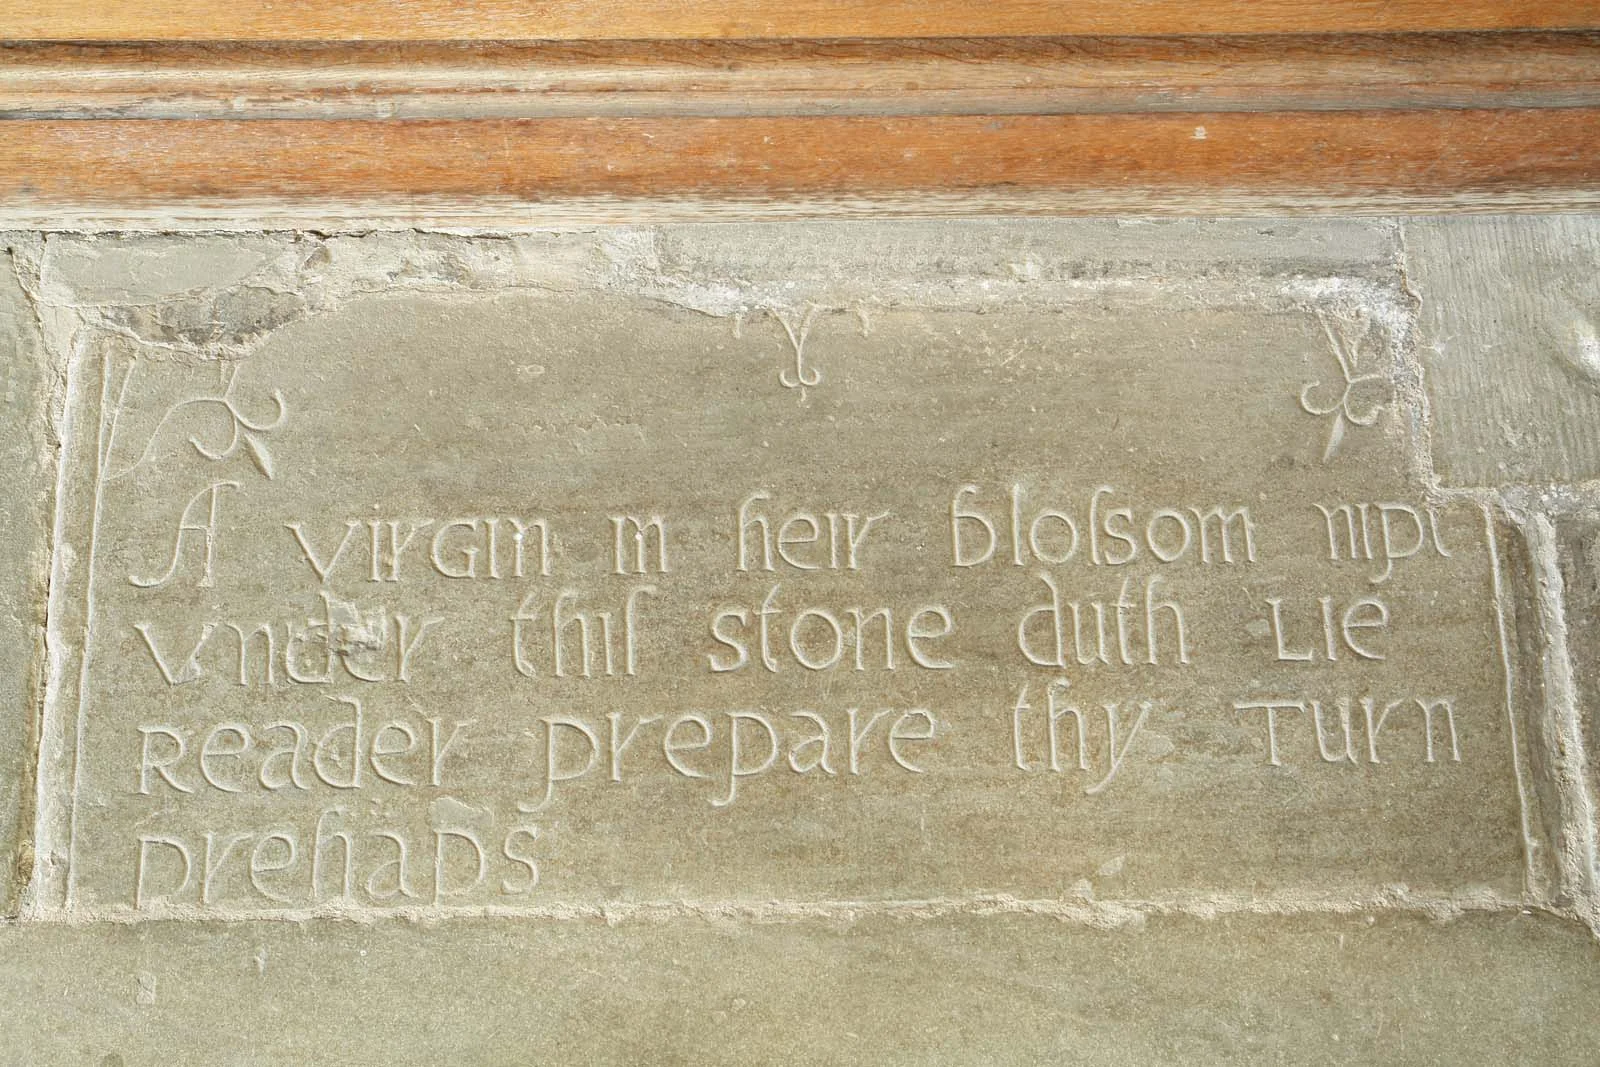 A VIRGIN IN heir bloſsom NIPt
Vnder thiſ stone duth LIE
Reader prepare thy Turn
prehaps